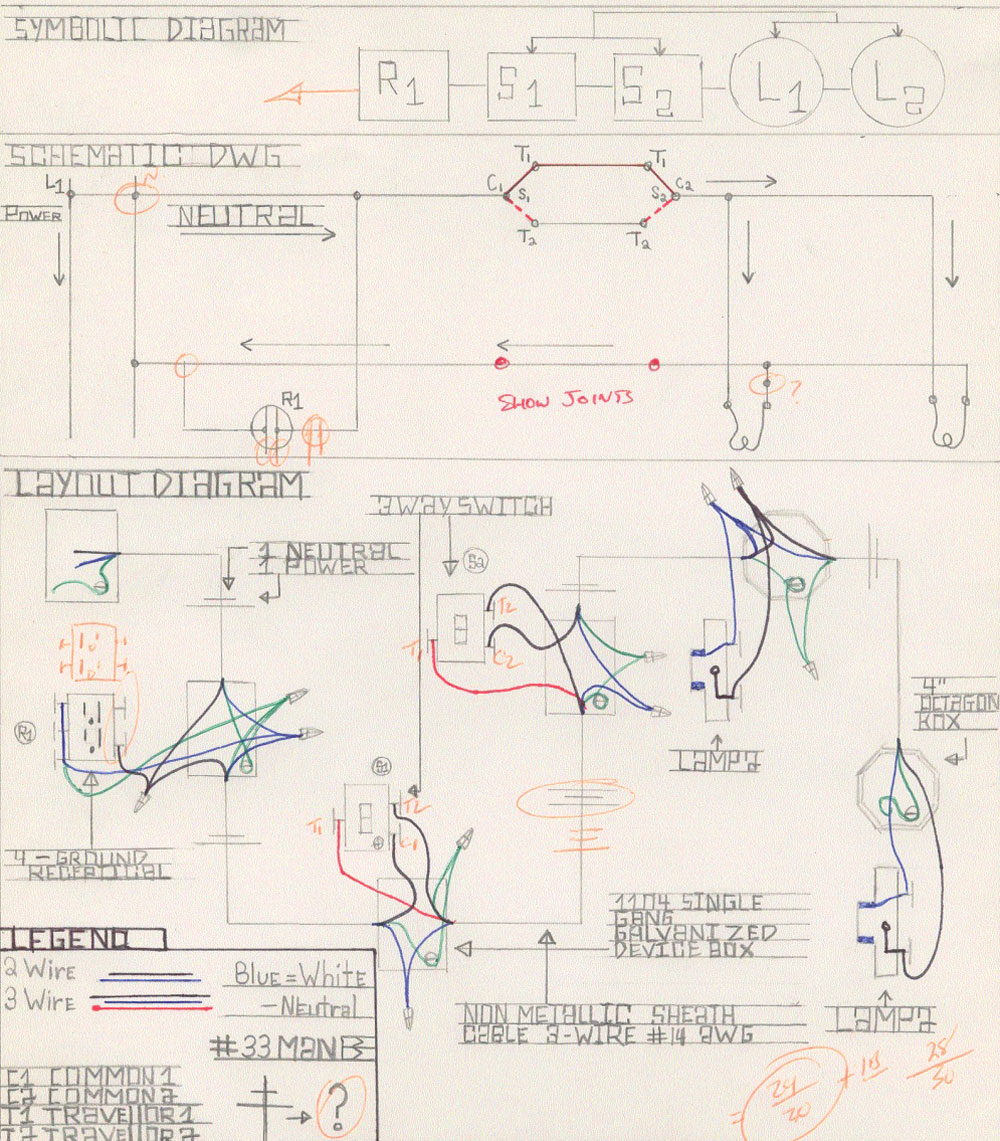 SYMBOLIC DIAGRAM
R1
S1
S2
L1
L2
SCHEMATIC DWG
L1
N
POWER
NEUTRAL
T1
T1
C1
S1
S2
C2
T2
T2
R1
SHOW JOINTS
?
LAYOUT DIAGRAM
3 WAY SWITCH
1 NEUTRAL
1 POWER
S2
T2
T1
C2
R1
LAMP2
4"
OCTAGON
BOX
S1
T2
T1
C1
4-GROUND
RECEPTICIAL
1104 SINGLE
GANG
GALVANIZED
DEVICE BOX
NON METALLIC SHEATH
CABLE 3-WIRE #14 AWG
LAMP2
LEGEND
2 WIRE
3 WIRE
BLUE=WHITE
-NEUTRAL
#33 MAN B
?
C1 COMMON1
C2 COMMON2
T1 TRAVELLOR1
T2 TRAVELLOR2
28/30